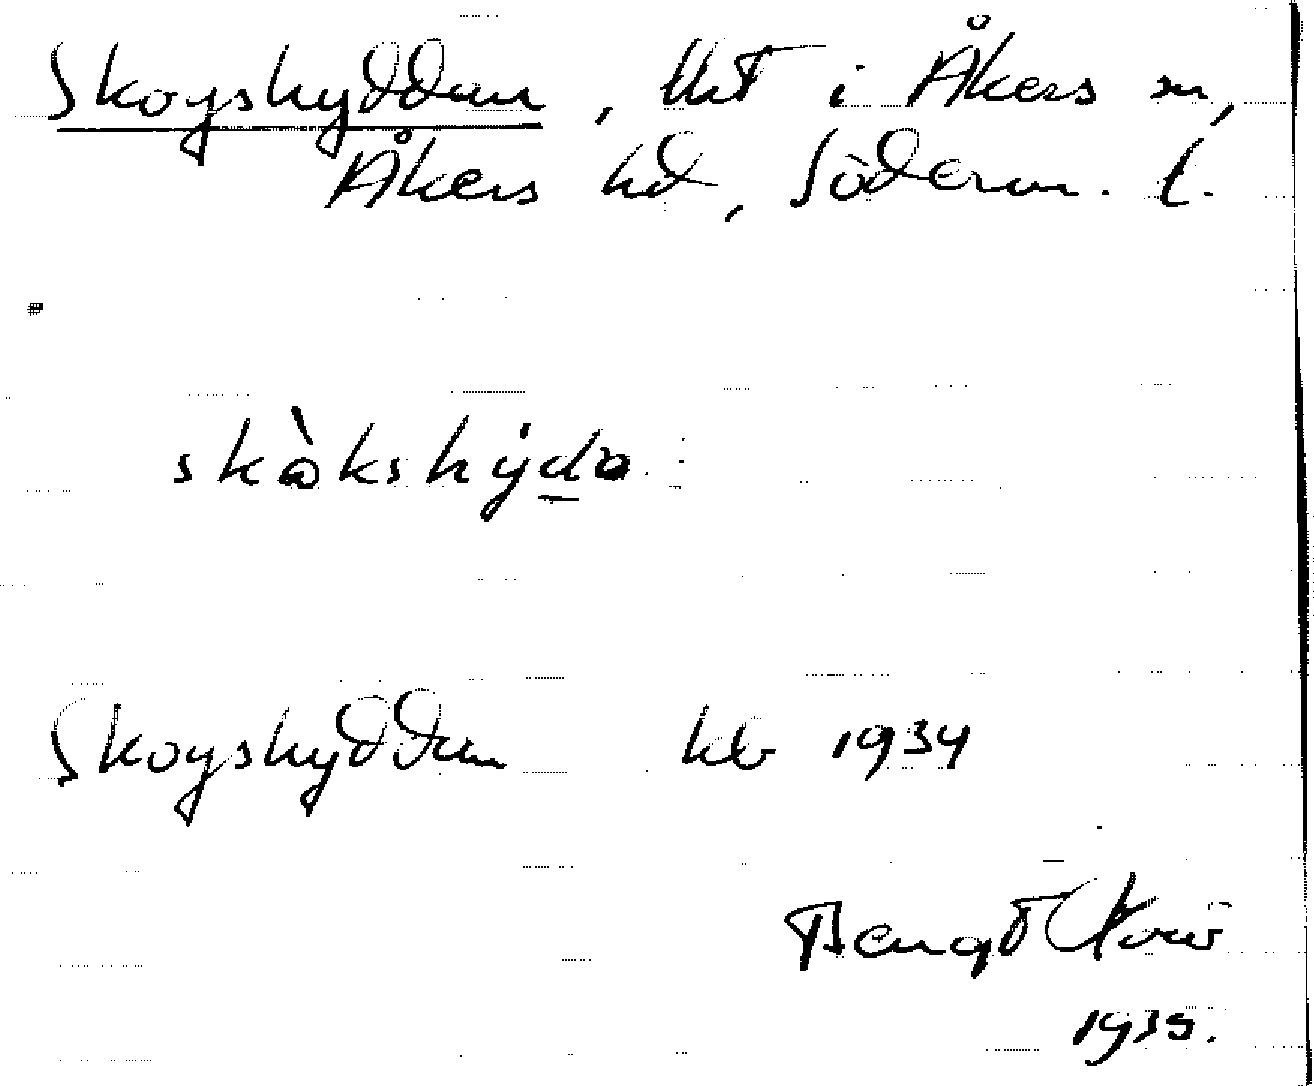 Skogshyddan, lht i Åkers sn,
Åkers hd, Söderm. l.
skòkshýda
Skogshyddan kb 1934
Bengt
1935.